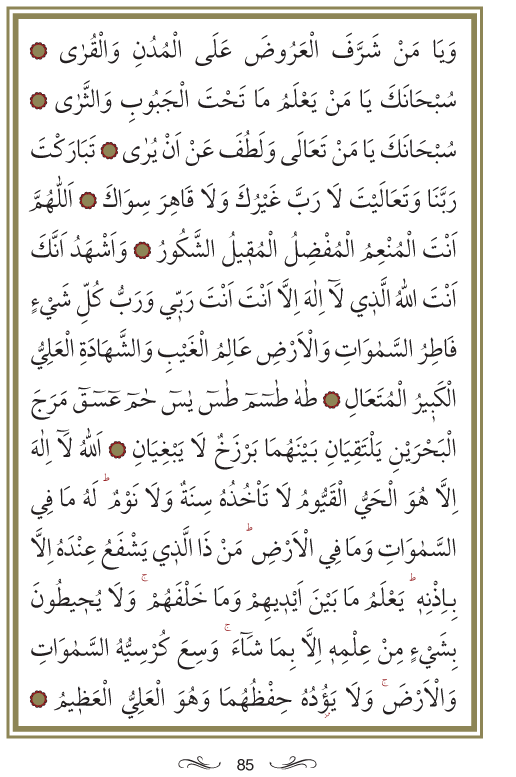 وَيَا مَنْ شَرَّفَ الْعَرُوضَ عَلَى الْمُدُنِ وَالْقُرٰى
سُبْحَانَكَ يَا مَنْ يَعْلَمُ مَا تَحْتَ الْجَبُوبِ وَالثَّرٰى
سُبْحَانَكَ يَا مَنْ تَعَالَى وَلَطُفَ عَنْ اَنْ يُرٰى تَبَارَكْتَ
رَبَّنَا وَتَعَالَيْتَ لَا رَبَّ غَيْرُكَ وَلَا قَاهِرَ سِوَاكَ اَللّٰهُمَّ
اَنْتَ الْمُنْعِمُ الْمُفْضِلُ الْمُقٖيلُ الشَّكُورُ وَاَشْهَدُ اَنَّكَ
اَنْتَ اللّٰهُ الَّذٖي لَٓا اِلٰهَ اِلَّا اَنْتَ اَنْتَ رَبّٖي وَرَبُّ كُلِّ شَيْءٍ
فَاطِرُ السَّمٰوَاتِ وَالْاَرْضِ عَالِمُ الْغَيْبِ وَالشَّهَادَةِ الْعَلِيُّ
الْكَبٖيرُ الْمُتَعَالِ طٰهٰ طٰسٓمٓ طٰسٓ يٰسٓ حٰمٓ عٓسٓقٓ مَرَجَ
الْبَحْرَيْنِ يَلْتَقِيَانِ بَيْنَهُمَا بَرْزَخٌ لَا يَبْغِيَانِ اَللّٰهُ لَٓا اِلٰهَ
اِلَّا هُوَ الْحَيُّ الْقَيُّومُ لَا تَاْخُذُهُ سِنَةٌ وَلَا نَوْمٌ ؕ لَهُ مَا فِي
السَّمٰوَاتِ وَمَا فِي الْاَرْضِ ؕ مَنْ ذَا الَّذٖي يَشْفَعُ عِنْدَهُ اِلَّا
بِاِذْنِهٖ ؕ يَعْلَمُ مَا بَيْنَ اَيْدٖيهِمْ وَمَا خَلْفَهُمْ ۚ وَلَا يُحٖيطُونَ
بِشَيْءٍ مِنْ عِلْمِهٖ اِلَّا بِمَا شَٓاءَ ۚ وَسِعَ كُرْسِيُّهُ السَّمٰوَاتِ
وَالْاَرْضَ ۚ وَلَا يَؤُدُهُ حِفْظُهُمَا وَهُوَ الْعَلِيُّ الْعَظٖيمُ
85